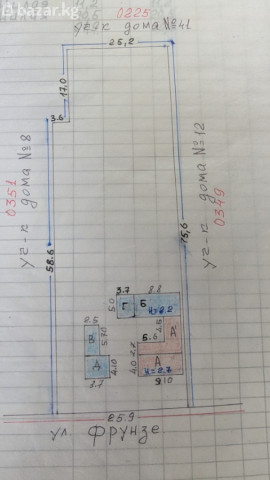 bazar.kg
0225
уч-к дома №41
25,2
17,0
3.6
0351
уч-к дома №8
58.6
уч-к дома №12
0349
75,6
3.7
8.8
5.0
Г
Б
н=2.2
2.5
В
5.70
Б.6
А'
Д
4.10
3.7
4.0
А
н=2.7
9.10
25.9
ул. Фрунзе.